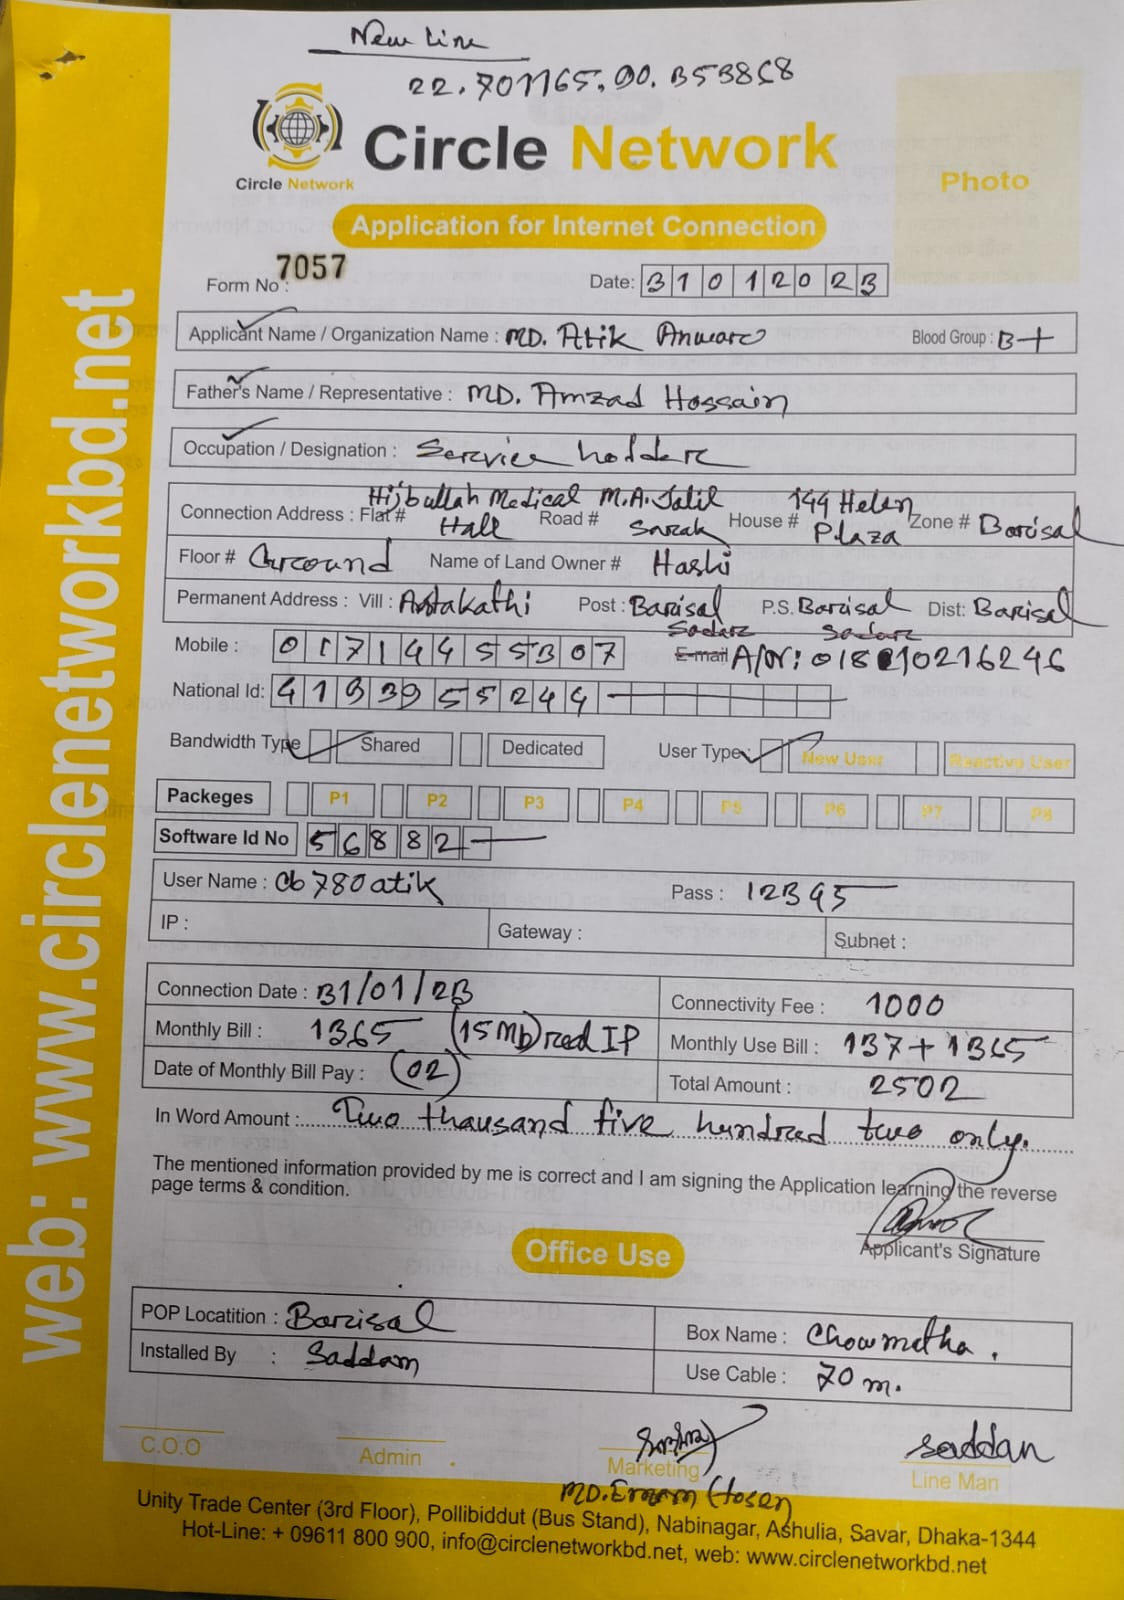 New Line
22.701165,90.353858
Circle Network
Circle Network
Photo
Application for Internet Connection
Form No : 7057
Date: 31012023
Applicant Name / Organization Name : MD. Atik Anwar
Blood Group : B+
Father's Name / Representative : MD. Amzad Hossain
Occupation / Designation : Service holder
Connection Address : Flat # Hijbullah Medical Hall Road # M.A. Jalil Sarak House # 144 Helen Plaza Zone # Barisal
Floor # Ground Name of Land Owner # Hashi
Permanent Address : Vill : Astakathi Post : Barisal Sadar P.S. Barisal Sadar Dist: Barisal
Mobile : 01714455307 E-mail A/Nr: 01810216246
National Id: 4193955244
Bandwidth Type Shared Dedicated User Type: New User Reactive User
Packeges P1 P2 P3 P4 P5 P6 P7 P8
Software Id No 56882
User Name : cb780atik Pass : 12345
IP : Gateway : Subnet :
Connection Date : 31/01/23 Connectivity Fee : 1000
Monthly Bill : 1365 (15Mb) real IP Monthly Use Bill : 137+1365
Date of Monthly Bill Pay : (02) Total Amount : 2502
In Word Amount : Two thausand five hundred two only.
The mentioned information provided by me is correct and I am signing the Application learning the reverse
page terms & condition.
Applicant's Signature
Office Use
POP Locatition : Barisal Box Name : Chowmatha.
Installed By : Saddam Use Cable : 70 m.
saddan
C.O.O Admin Marketing Line Man
MD. Emam Hosen
Unity Trade Center (3rd Floor), Pollibiddut (Bus Stand), Nabinagar, Ashulia, Savar, Dhaka-1344
Hot-Line: + 09611 800 900, info@circlenetworkbd.net, web: www.circlenetworkbd.net
web: www.circlenetworkbd.net